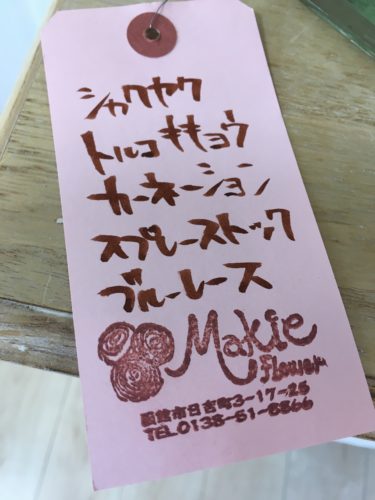 シャクヤク
トルコキキョウ
カーネーション
スプレーストック
ブルーレース
Makie
flower
函館市日吉町3-17-25
TEL 0138-51-8866